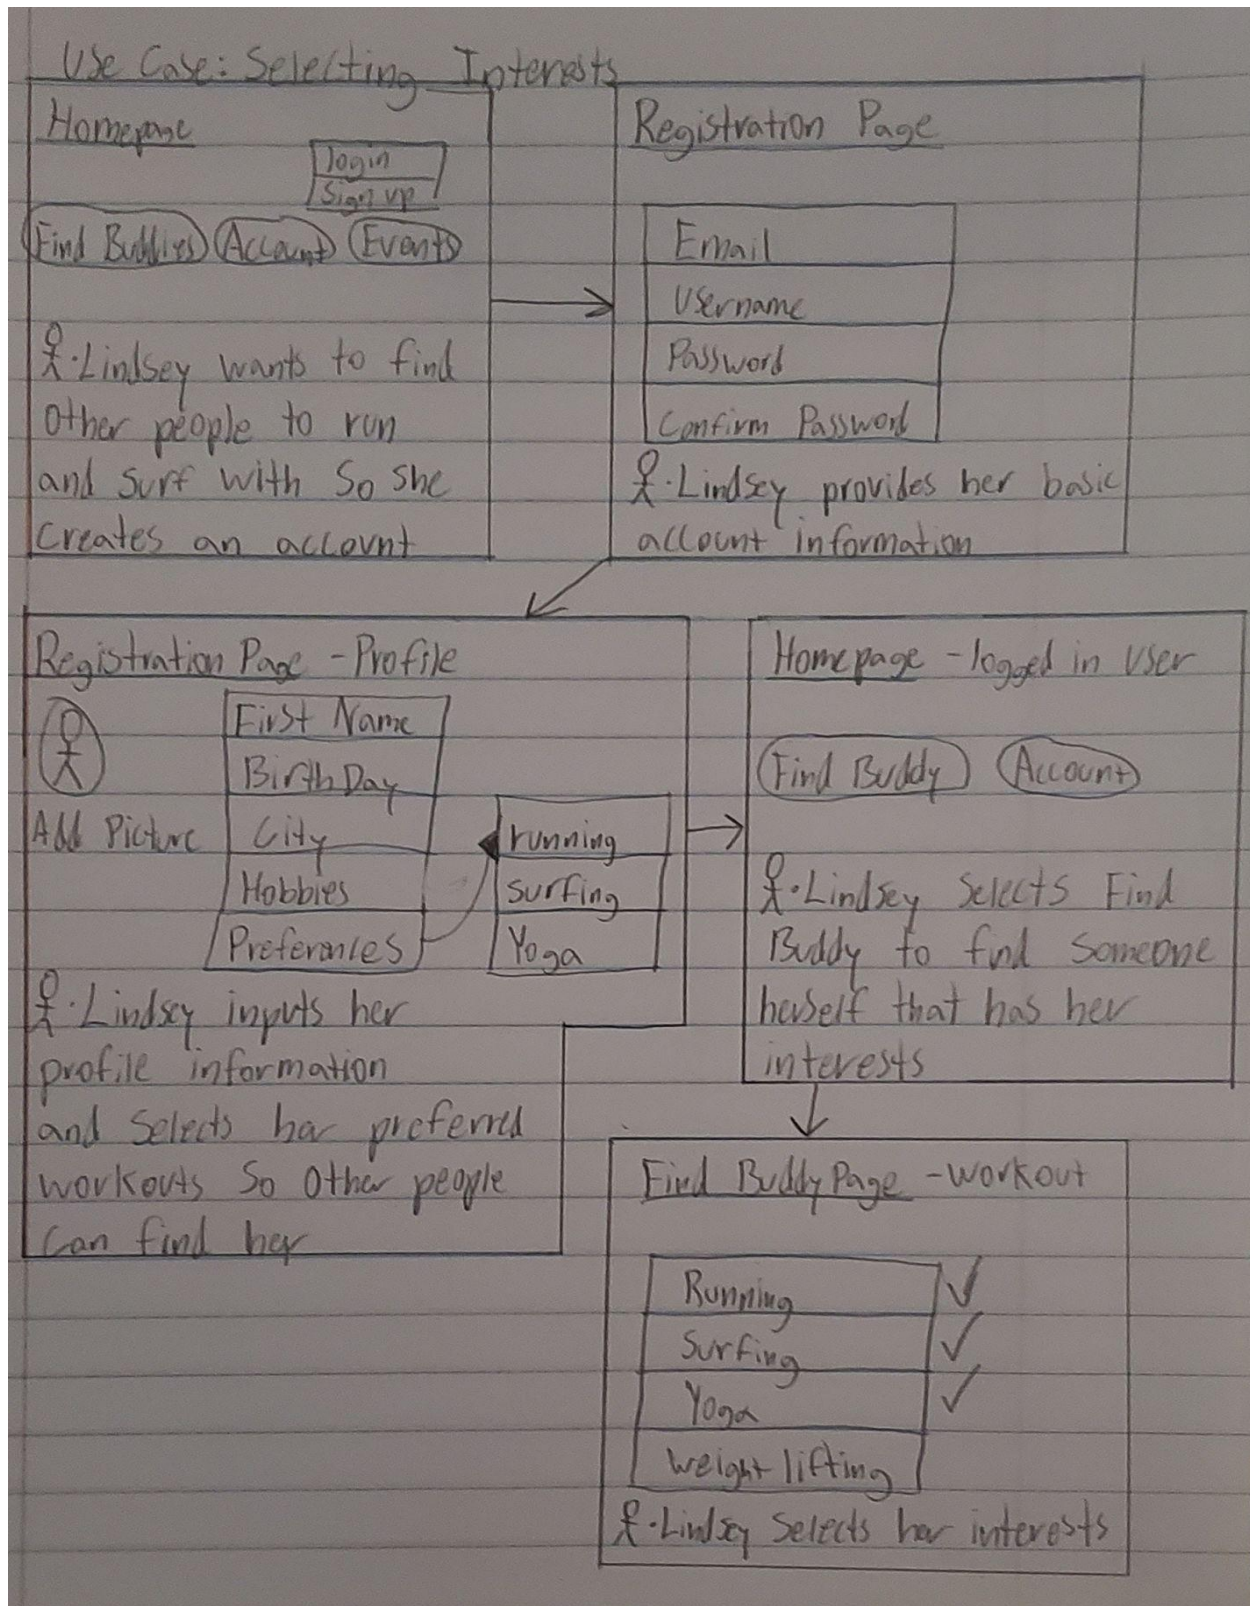 Use Case: Selecting Interests
Homepage
login
Sign up
Find Buddies Account Events
Lindsey wants to find
other people to run
and surf with so she
creates an account
Registration Page
Email
Username
Password
Confirm Password
Lindsey provides her basic
account information
Registration Page - Profile
Add Picture
First Name
BirthDay
City
Hobbies
Preferences
running
surfing
Yoga
Lindsey inputs her
profile information
and selects her preferred
workouts so other people
can find her
Homepage - logged in user
Find Buddy Account
Lindsey selects Find
Buddy to find someone
herself that has her
interests
Find Buddy Page - workout
Running
Surfing
Yoga
weight lifting
Lindsey selects her interests